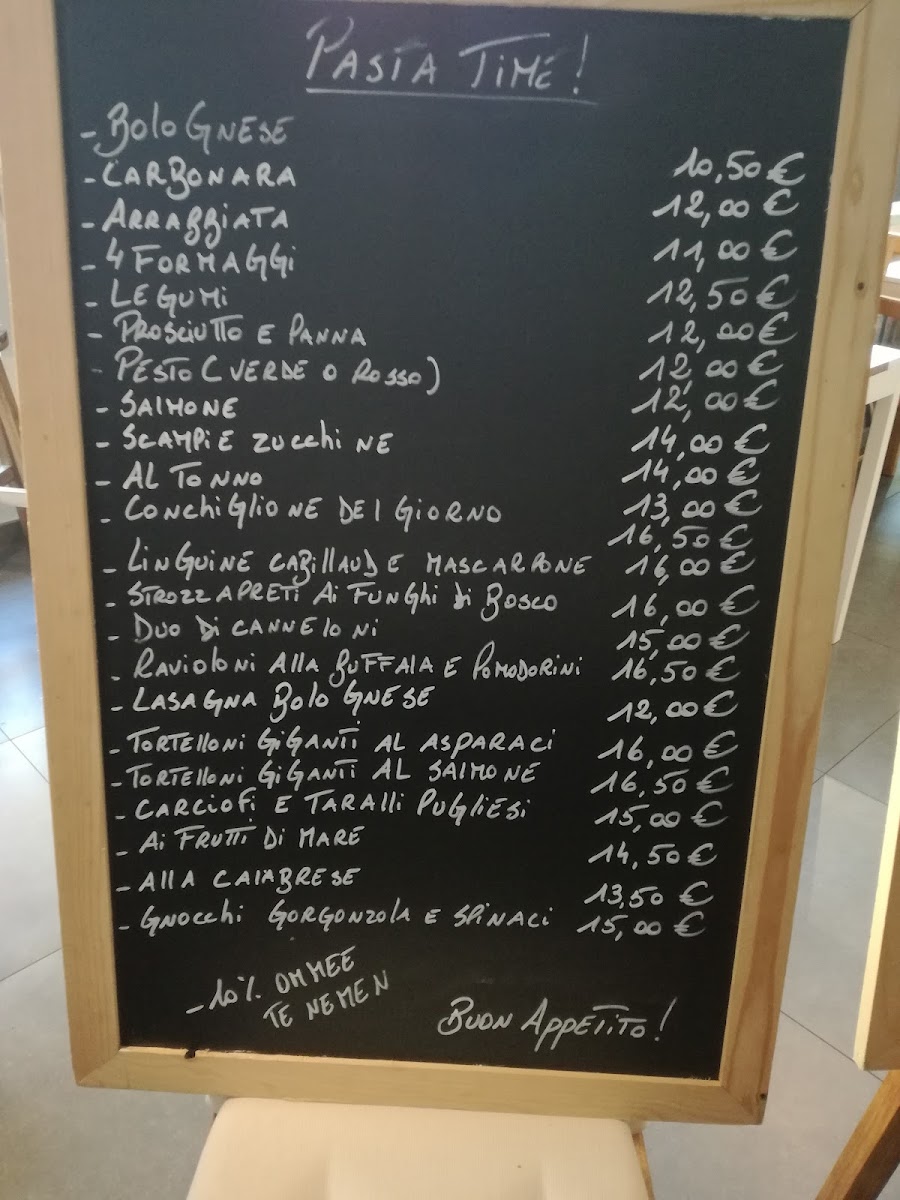 PASTA TIME!
- BOLOGNESE 10,50 €
- CARBONARA 12,00 €
- ARRABBIATA 11,00 €
- 4 FORMAGGI 12,50 €
- LEGUMI 12,00 €
- PROSCIUTTO E PANNA 12,00 €
- PESTO (VERDE O ROSSO) 12,00 €
- SALMONE 14,00 €
- SCAMPI E ZUCCHINE 14,00 €
- AL TONNO 13,00 €
- CONCHIGLIONE DEL GIORNO 16,50 €
- LINGUINE CABILLAUD E MASCARPONE 16,00 €
- STROZZAPRETI AI FUNGHI DI BOSCO 16,00 €
- DUO DI CANNELONI 15,00 €
- RAVIOLONI ALLA BUFFALA E POMODORINI 16,50 €
- LASAGNA BOLOGNESE 12,00 €
- TORTELLONI GIGANTI AL ASPARACI 16,00 €
- TORTELLONI GIGANTI AL SALMONE 16,50 €
- CARCIOFI E TARALLI PUGLIESI 15,00 €
- AI FRUTTI DI MARE 14,50 €
- ALLA CALABRESE 13,50 €
- GNOCCHI GORGONZOLA E SPINACI 15,00 €
- 10% OM MEE
TE NEMEN
BUON APPETITO!